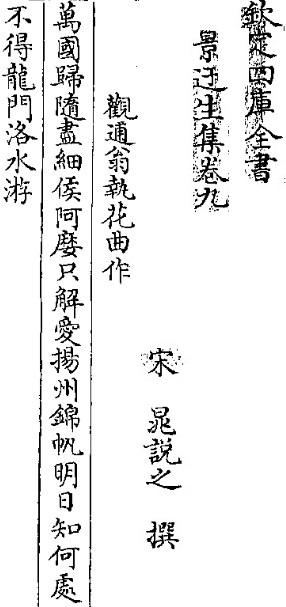 欽定四庫全書
景迂生集卷九
宋 晁説之 撰
觀通翁執花曲作
萬國歸隨盡細侯阿㜷只解愛揚州錦帆明日知何處
不得龍門洛水游